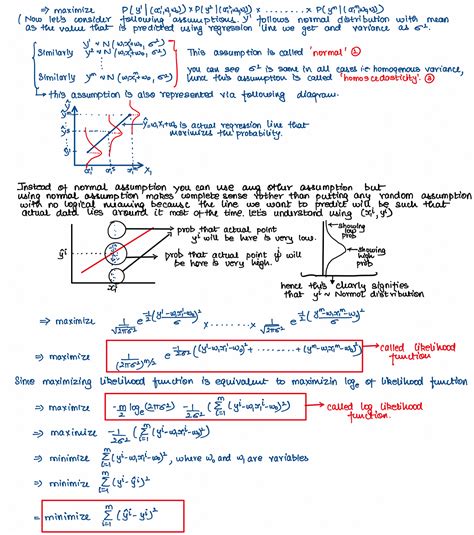 ⇒ maximize P(y¹|(x₁¹,w₁,w₀)) × P(y²|(x₁²,w₁,w₀)) × ......... × P(yᵐ|(x₁ᵐ,w₁,w₀))
(Now let's consider following assumptions. y¹ follows normal distribution with mean
as the value that is predicted using regression line we get and variance as σ².
y¹ ~ N(w₁x₁¹+w₀, σ²)
Similarly y² ~ N(w₁x₁²+w₀, σ²)
Similarly yᵐ ~ N(w₁x₁ᵐ+w₀, σ²)
This assumption is called 'normal' ①
you can see σ² is same in all cases i.e homogenous variance,
hence this assumption is called 'homoscedasticity'. ②
this assumption is also represented via following diagram.
ŷ=w₁x₁+w₀ is actual regression line that
maximizes the probability.
x₁
Instead of normal assumption you can use any other assumption but
using normal assumption makes complete sense rather than putting any random assumption
with no logical meaning because the line we want to predict will be such that
actual data lies around it most of the time. let's understand using (x₁ⁱ, yⁱ)
prob that actual point
yⁱ will be here is very low.
ŷⁱ
prob that actual point yⁱ
will be here is very high.
x₁ⁱ
showing
low
prob
showing
high
prob
hence this clearly signifies
that yⁱ ~ Normal distribution
⇒ maximize 1/√2πσ² e^-½(y¹-w₁x₁¹-w₀)²/σ² × ........ × 1/√2πσ² e^-½(yᵐ-w₁x₁ᵐ-w₀)²/σ²
⇒ maximize 1/(2πσ²)^m/2 e^-1/2σ² ((y¹-w₁x₁¹-w₀)² + ......... + (yᵐ-w₁x₁ᵐ-w₀)²) called likelihood
function
Since maximizing likelihood function is equivalent to maximizin logₑ of likelihood function
⇒ maximize -m/2 logₑ(2πσ²) -1/2σ² (Σᵢ₌₁ᵐ (yⁱ-w₁x₁ⁱ-w₀)²) called log likelihood
function.
⇒ maximize -1/2σ² (Σᵢ₌₁ᵐ (yⁱ-w₁x₁ⁱ-w₀)²)
⇒ minimize Σᵢ₌₁ᵐ (yⁱ-w₁x₁ⁱ-w₀)², where w₀ and w₁ are variables
⇒ minimize Σᵢ₌₁ᵐ (yⁱ-ŷⁱ)²
= minimize Σᵢ₌₁ᵐ (ŷⁱ-yⁱ)²